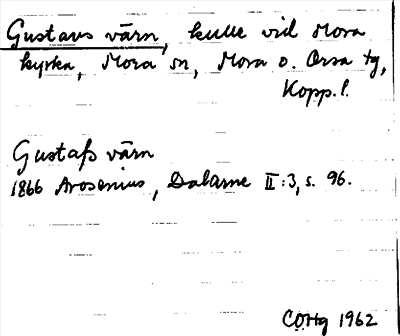 Gustavs värn, kulle vid Mora
kyrka, Mora sn, Mora o. Orsa tg,
Kopp. l.
Gustafs värn
1866 Arosenius, Dalarne II:3, s. 96.
COHg 1962